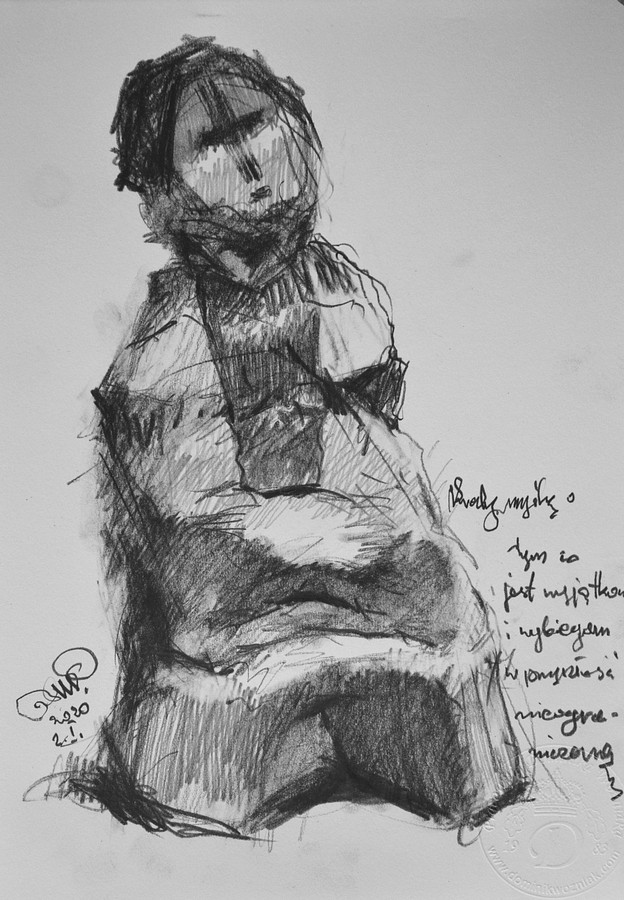 myślę o
tym co
jest wyjątkow
i wybiegam
w przyszłość
nieogra-
niczoną
2020
2.I.
www.dominikwozniak.com